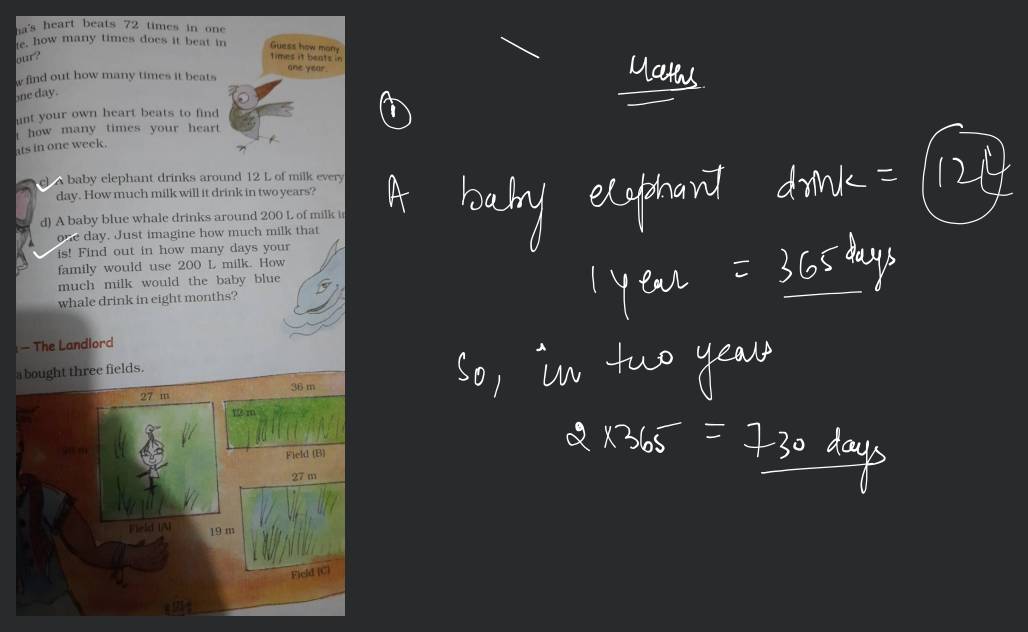 ha's heart beats 72 times in one
te, how many times does it beat in
our?
Guess how many
times it beats in
one year.
w find out how many times it beats
one day.
unt your own heart beats to find
t how many times your heart
ats in one week.
c) A baby elephant drinks around 12 L of milk every
day. How much milk will it drink in two years?
d) A baby blue whale drinks around 200 L of milk in
one day. Just imagine how much milk that
is! Find out in how many days your
family would use 200 L milk. How
much milk would the baby blue
whale drink in eight months?
– The Landlord
a bought three fields.
27 m
36 m
12 m
Field (B)
27 m
Field (A)
19 m
Field (C)
Maths
①
A baby elephant drink = 12L
1 year = 365 days
So, in two years
2 × 365 = 730 days